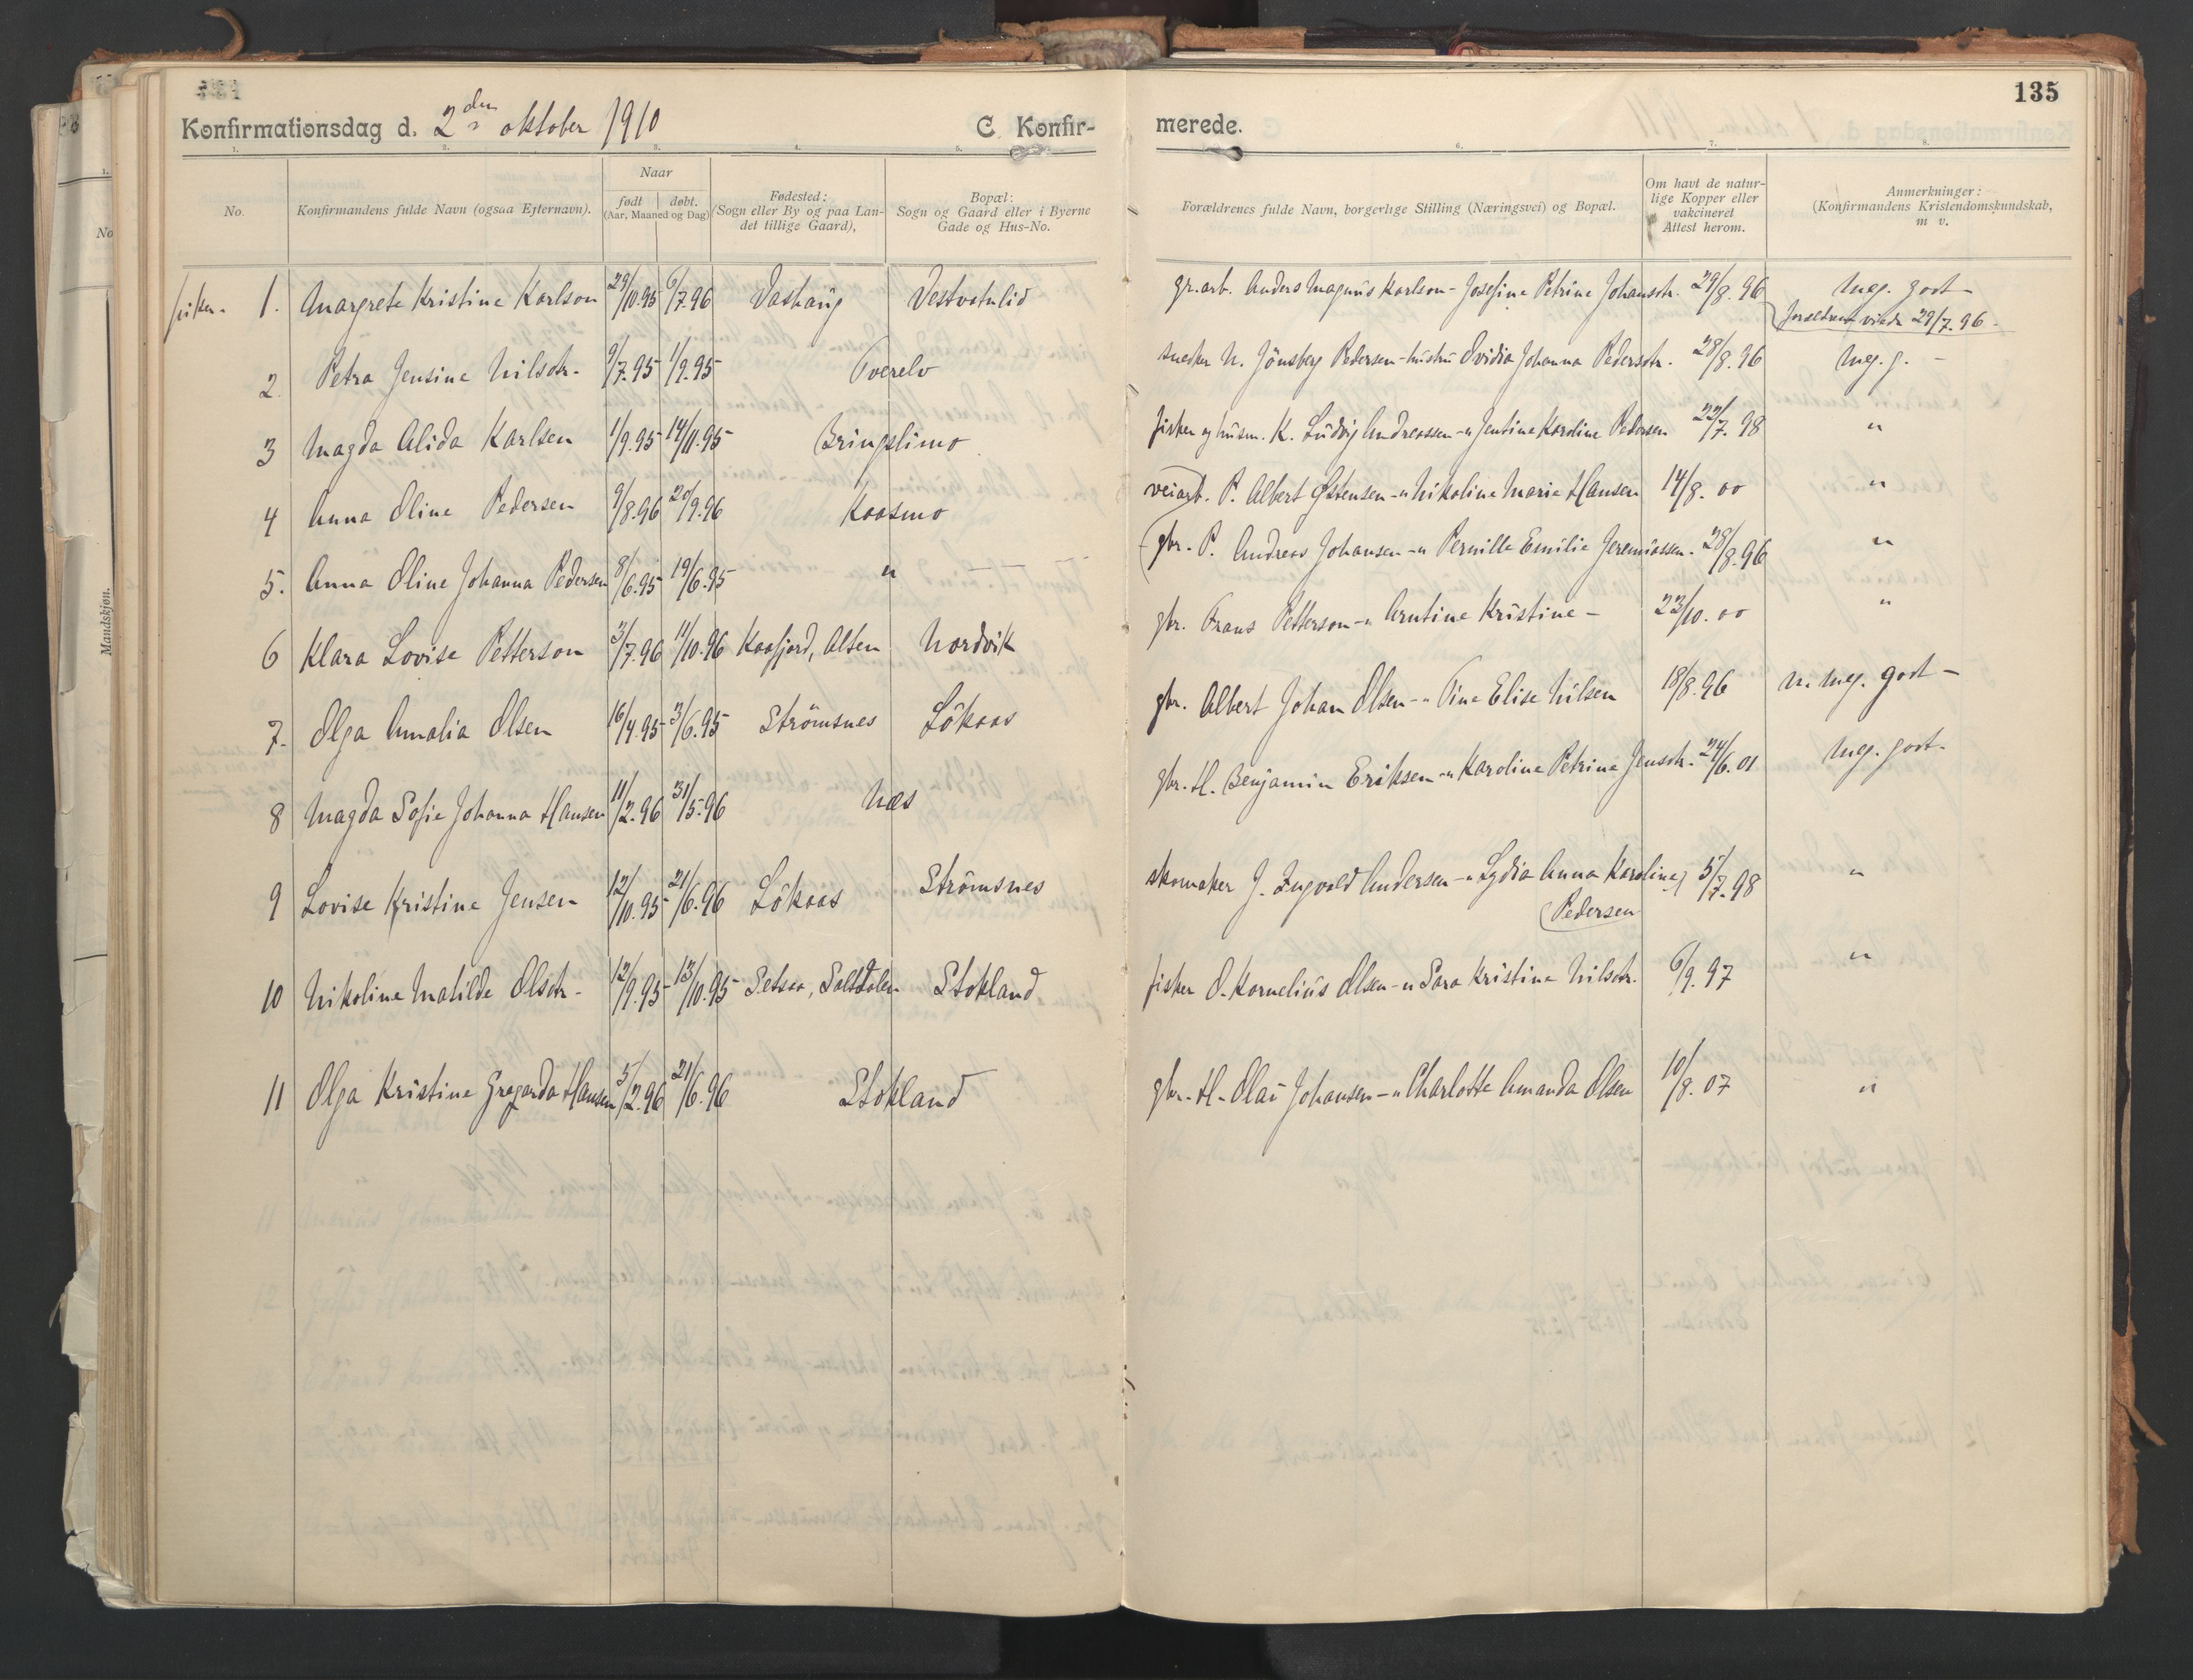 135
Konfirmationsdag d. 2den oktober 1910
C. Konfirmerede.
1. 2. 3. 4. 5. 6. 7. 8.
No.
Konfirmandens fulde Navn (ogsaa Efternavn).
Naar
født døbt.
(Aar, Maaned og Dag)
Fødested:
(Sogn eller By og paa Lan-
det tillige Gaard),
Bopæl:
Sogn og Gaard eller i Byerne
Gade og Hus-No.
Forældrenes fulde Navn, borgerlige Stilling (Næringsvei) og Bopæl.
Om havt de natur-
lige Kopper eller
vakcineret
Attest herom.
Anmerkninger:
(Konfirmandens Kristendomskundskab,
m v.
No
Mandskjøn.
piker. 1. Margrete Kristine Karlson 29/10.95 6/7.96 Vashaug Vestvatnlid gr.arb. Anders Magnus Karlson - Josefine Petrine Johansdtr. 29/8.96 Meg. godt
Forældrene viede 29/7.96
2. Petra Jensine Nilsdtr. 9/7.95 1/9.95 Tverelv snedker N. Jönsberg Pedersen - hustru Ovidia Johanna Pedersdtr. 28/8.96 Meg. g. -
3 Magda Alida Karlsen 1/9.95 14/11.95 Bringslimo fisker og husm. K. Ludvig Andreassen - " Jentine Karoline Pedersen 22/7.98 "
4 Anna Oline Pedersen 9/8.96 20/9.96 Kaasmo veiarb. P. Albert Østensen - " Nikoline Marie Hansen 14/8.00 "
5. Anna Oline Johanna Pedersen 8/6.95 19/6.95 " gbr. P. Andreas Johansen - " Pernille Emilie Jeremiassen. 28/8.96 "
6 Klara Lovise Petterson 3/7.96 11/10.96 Kaafjord, Alten Nordvik gbr. Frans Petterson - " Arntine Kristine - 23/10.00 "
7. Olga Amalia Olsen 16/4.95 3/6.95 Strömsnes Lökaas gbr. Albert Johan Olsen - " Tine Elise Nilsen 18/8.96 n. meg. godt -
8 Magda Sofie Johanna Hansen 11/2.96 31/5.96 Næs gbr. H. Benjamin Eriksen - " Karoline Petrine Jensdtr. 24/6.01 Meg. godt.
9 Lovise Kristine Jensen 12/10.95 21/6.96 Lökaas Strömsnes skomaker J. Ingvald Andersen - " Lydia Anna Karoline 5/7.98 "
Pedersen
10 Nikoline Matilde Olsdtr. 12/9.95 13/10.95 Setsaa, Saltdalen Stokland fisker O. Kornelius Olsen - " Sara Kristine Nilsdtr. 6/9.97 "
11 Olga Kristine Gregarda Hansen 5/2.96 21/6.96 Stokland gbr. H. Olai Johansen - " Charlotte Amanda Olsen 10/8.07 "